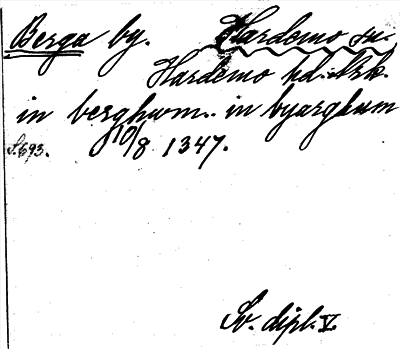 Berga by. Hardemo sn.
Hardemo hd. Örk.
in berghum.. in byarghum
S. 693. 10/8 1347.
Sv. dipl. V.